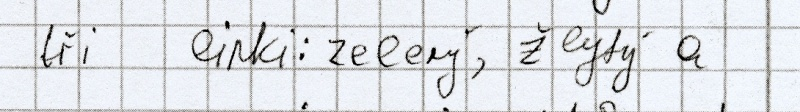 tři linki: zelený, žlytý a